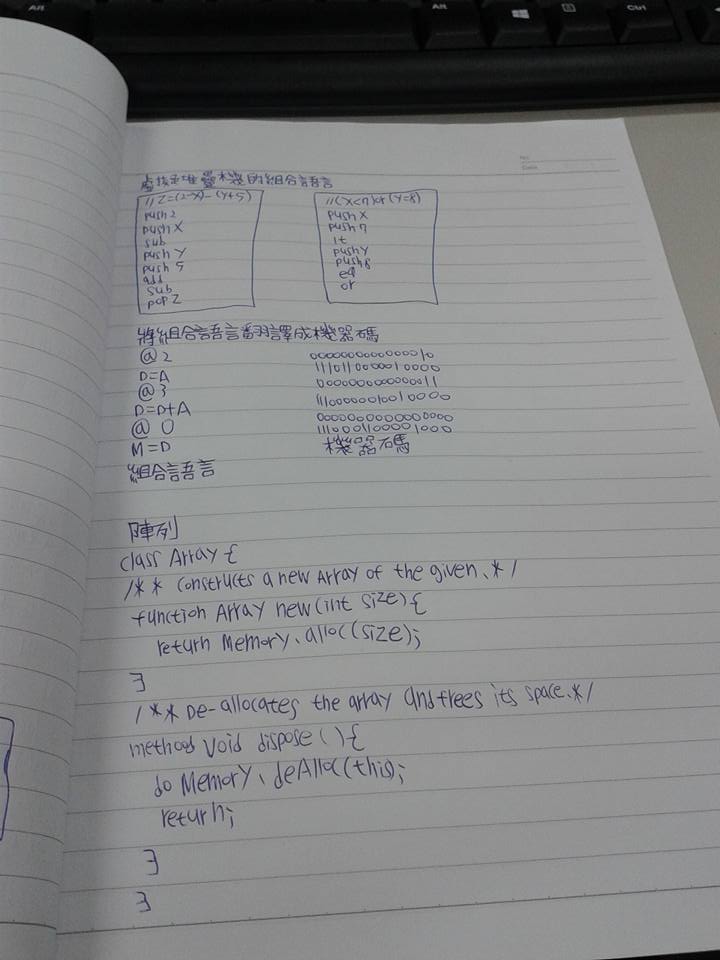 Alt
Alt
Ctrl
No.
Date
虛擬堆疊機的組合語言
//Z=(2-X)-(Y+5)
push 2
push X
sub
push Y
push 5
add
sub
pop Z
//(X<7)or(Y=8)
push X
push 7
lt
push Y
push 8
eq
or
將組合語言翻譯成機器碼
@ 2 0000000000000010
D=A 1110110000010000
@ 3 0000000000000011
D=D+A 1110000010010000
@ 0 0000000000000000
M=D 1110001100001000
組合語言 機器碼
陣列
class Array {
/** constructs a new Array of the given.*/
function Array new(int size){
return Memory.alloc(size);
}
/** De-allocates the array and frees its space.*/
method void dispose(){
do Memory.deAlloc(this);
return;
}
}